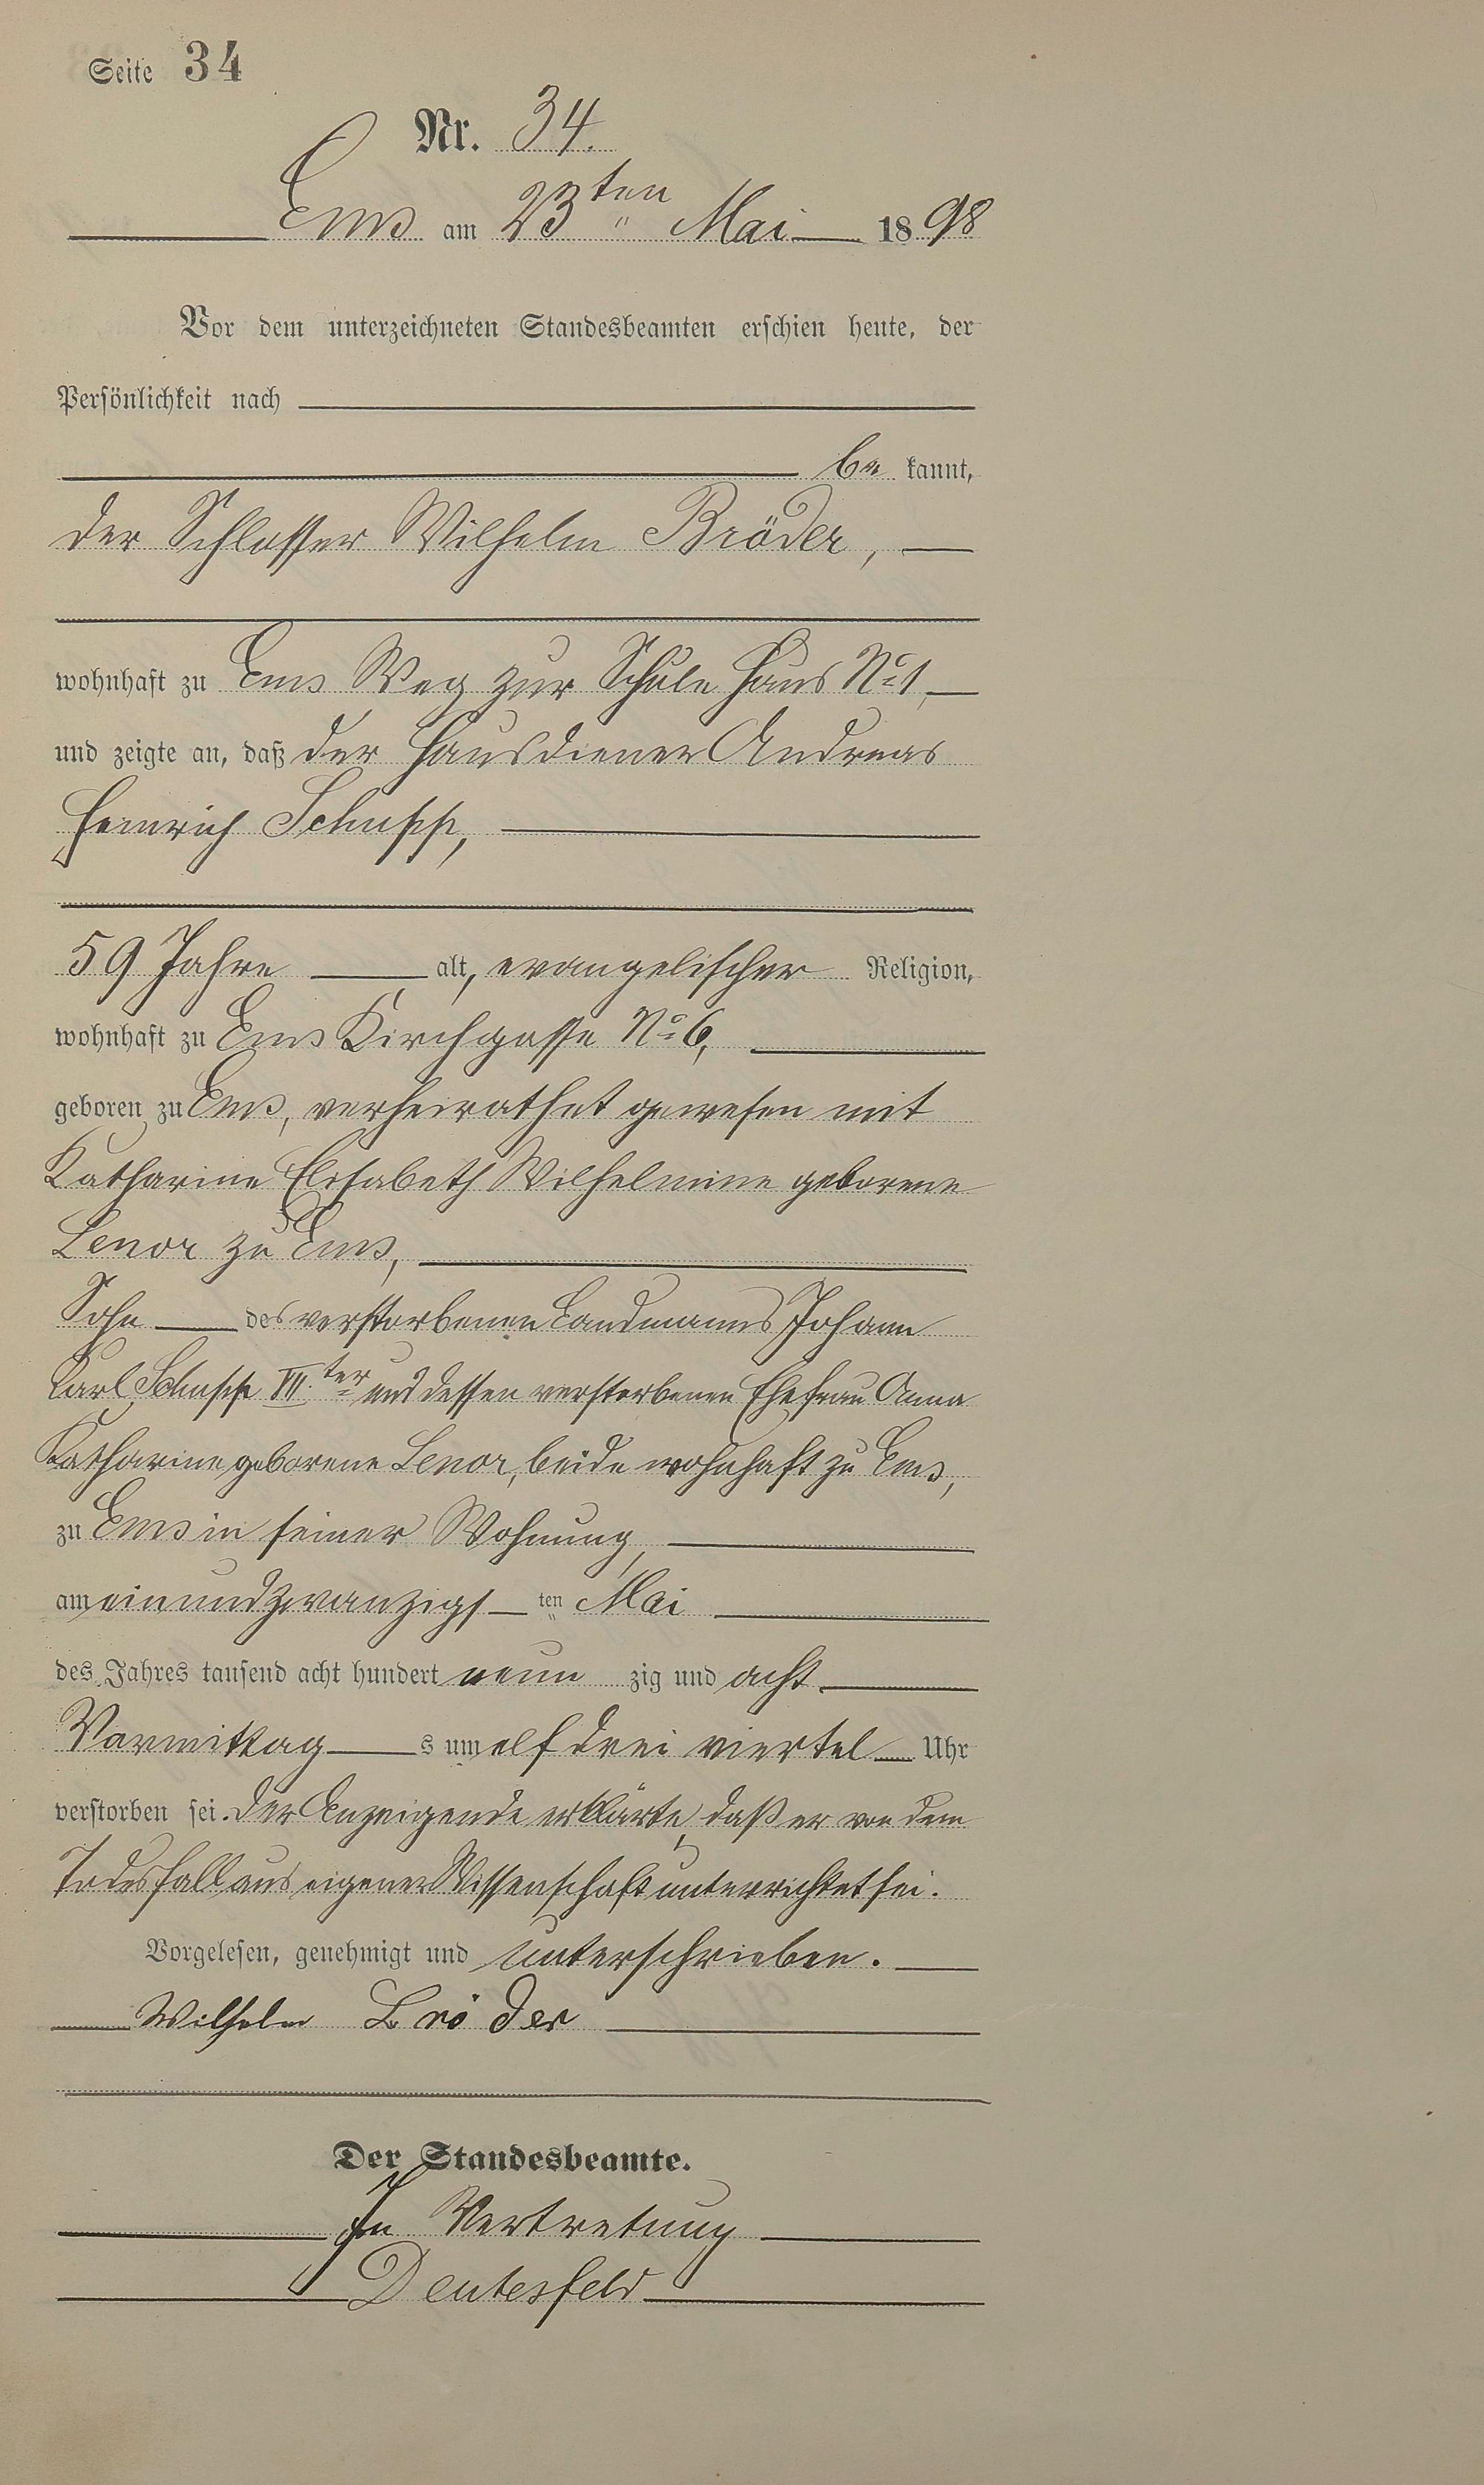 Seite 34
Nr. 34.
Ems am 23ten Mai 1898
Vor dem unterzeichneten Standesbeamten erschien heute, der
Persönlichkeit nach
be kannt,
der Schlosser Wilhelm Bröder,
wohnhaft zu Ems Weg zur Schule Haus No 1,
und zeigte an, daß der Hausdiener Andreas
Heinrich Schupp,
59 Jahre alt, evangelischer Religion,
wohnhaft zu Ems Kirchgasse No 6,
geboren zu Ems, verheirathet gewesen mit
Katharine Elisabeth Wilhelmine geborene
Lenor zu Ems,
Sohn des verstorbenen Landmanns Johann
Karl Schupp VII.ter und dessen verstorbenen Ehefrau Anna
Katharine geborene Lenor, beide wohnhaft zu Ems,
zu Ems in seiner Wohnung,
am einundzwanzigsten Mai
des Jahres tausend acht hundert neun zig und acht
Vormittag s um elf drei viertel Uhr
verstorben sei. Der Anzeigende erklärte, daß er von dem
Todesfall aus eigener Wissenschaft unterrichtet sei.
Vorgelesen, genehmigt und unterschrieben.
Wilhelm Bröder
Der Standesbeamte.
In Vertretung
Deutesfeld